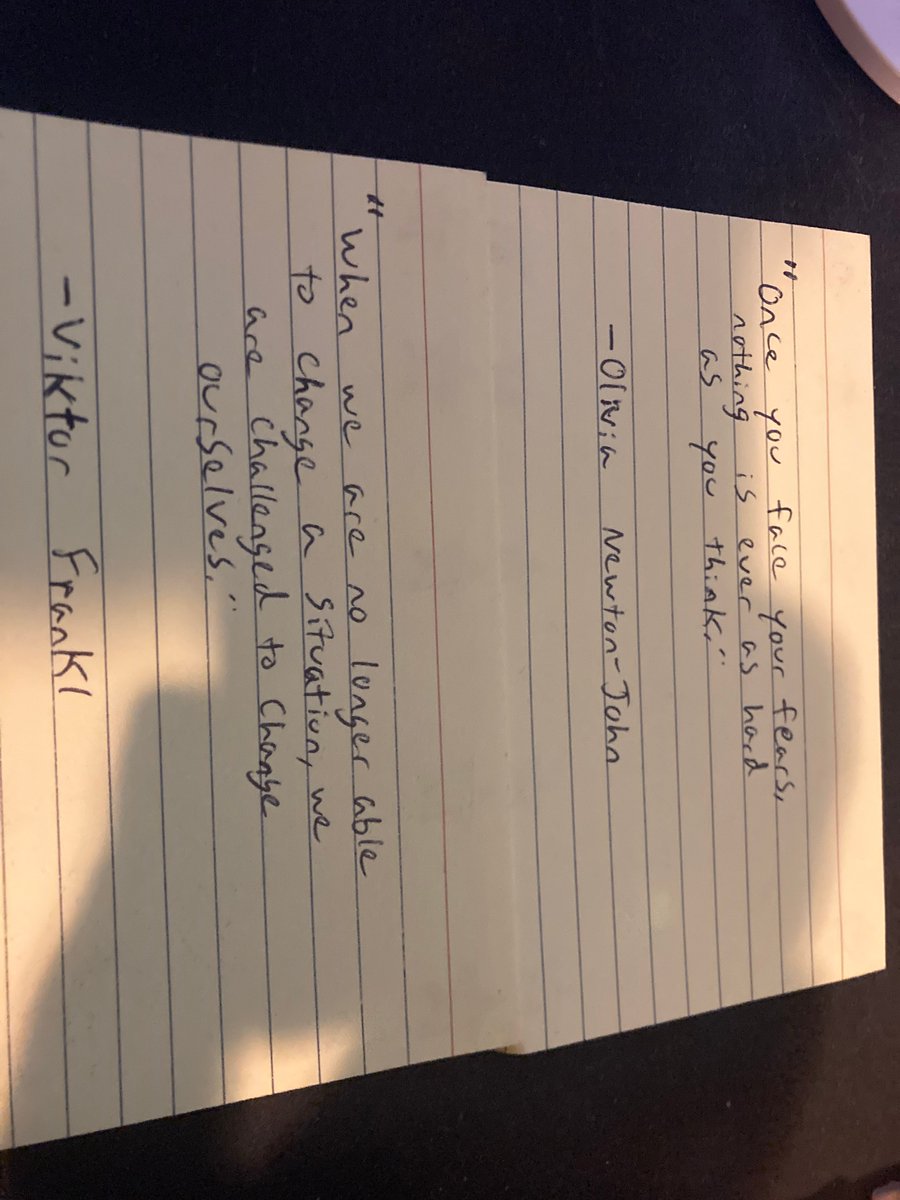 "Once you face your fears,
nothing is ever as hard
as you think."
-Olivia Newton-John
"When we are no longer able
to change a situation, we
are challenged to change
ourselves."
-Viktor Frankl